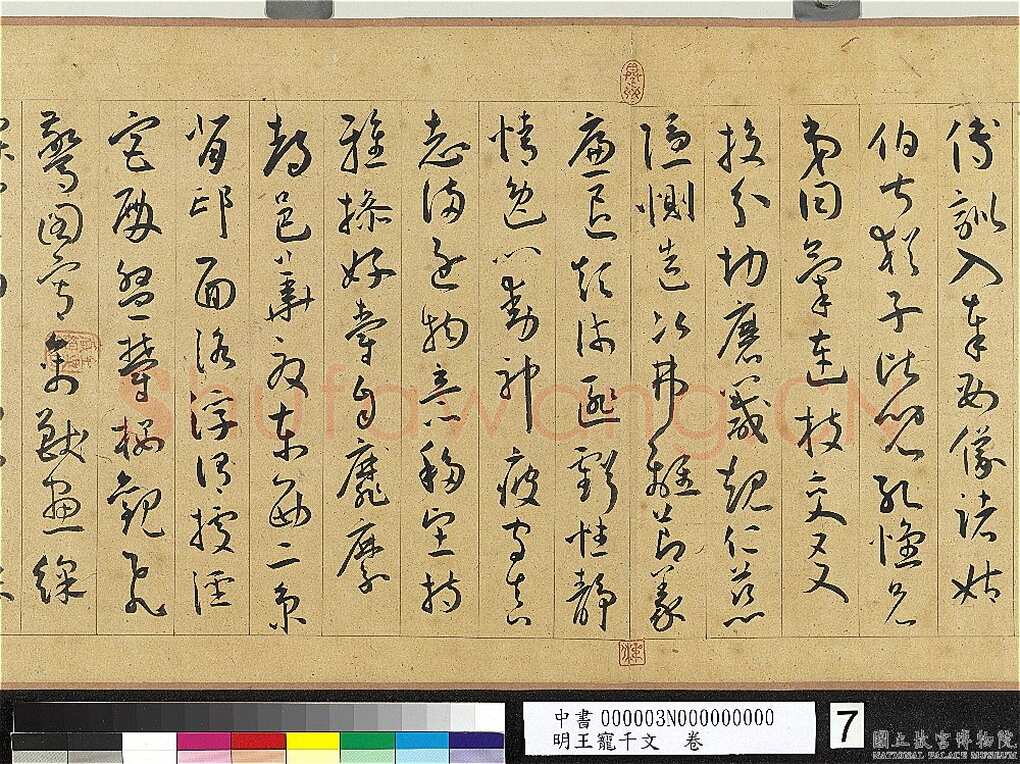 傅訓入奉母儀諸姑
伯叔猶子比兒孔懷兄
弟同氣連枝交友
投分切磨箴規仁慈
隱惻造次弗離節義
廉退顛沛匪虧性靜
情逸心動神疲守真
志滿逐物意移堅持
雅操好爵自靡縻
都邑華夏東西二京
背邙面洛浮渭據涇
宮殿盤鬱樓觀飛
驚圖寫禽獸畫綵
Shufawang.CN
中書000003N000000000
明王寵千文 卷
7
國立故宮博物院
NATIONAL PALACE MUSEUM